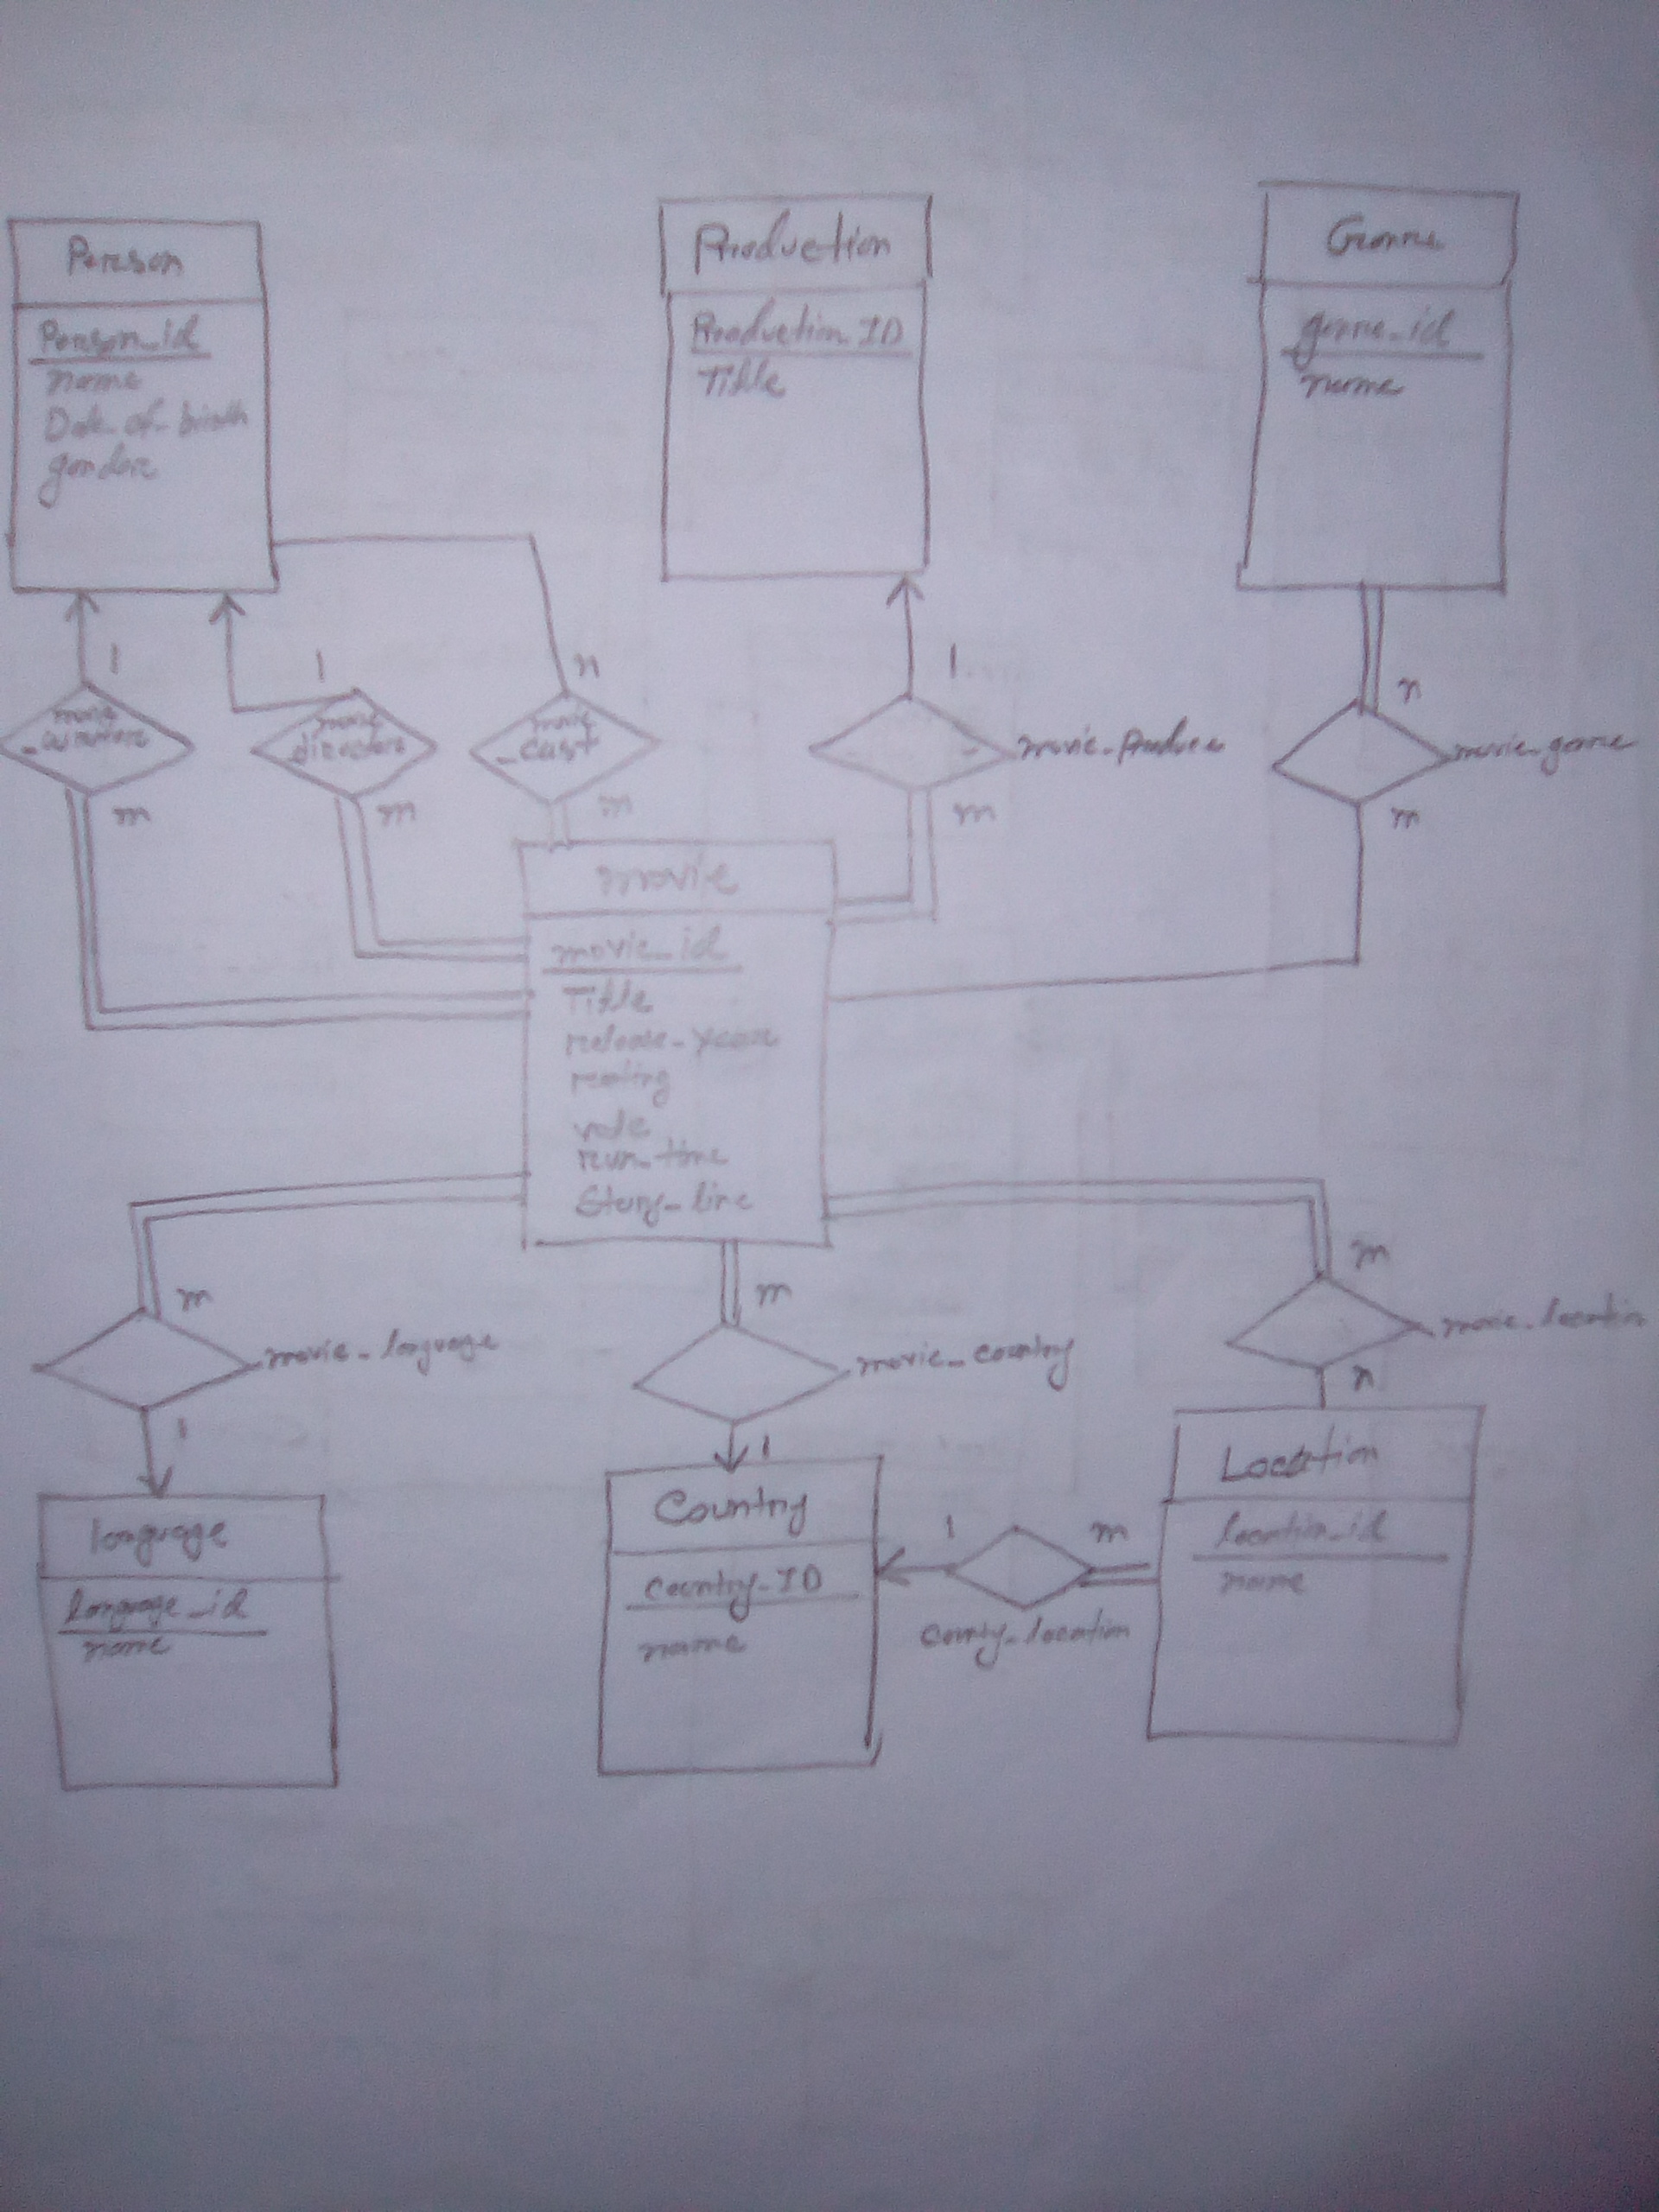 Person
Person_id
name
Date_of_birth
gender
Production
Production_ID
Title
Genre
genre_id
name
1
1
n
1
n
movie
_writers
movie
directors
movie
_cast
movie_Produce
movie_genre
m
m
m
m
m
movie
movie_id
Title
release_year
rating
vote
run_time
Story_line
m
m
m
movie_language
movie_country
movie_location
1
1
n
language
language_id
name
Country
Country_ID
name
1
m
county_location
Location
location_id
name